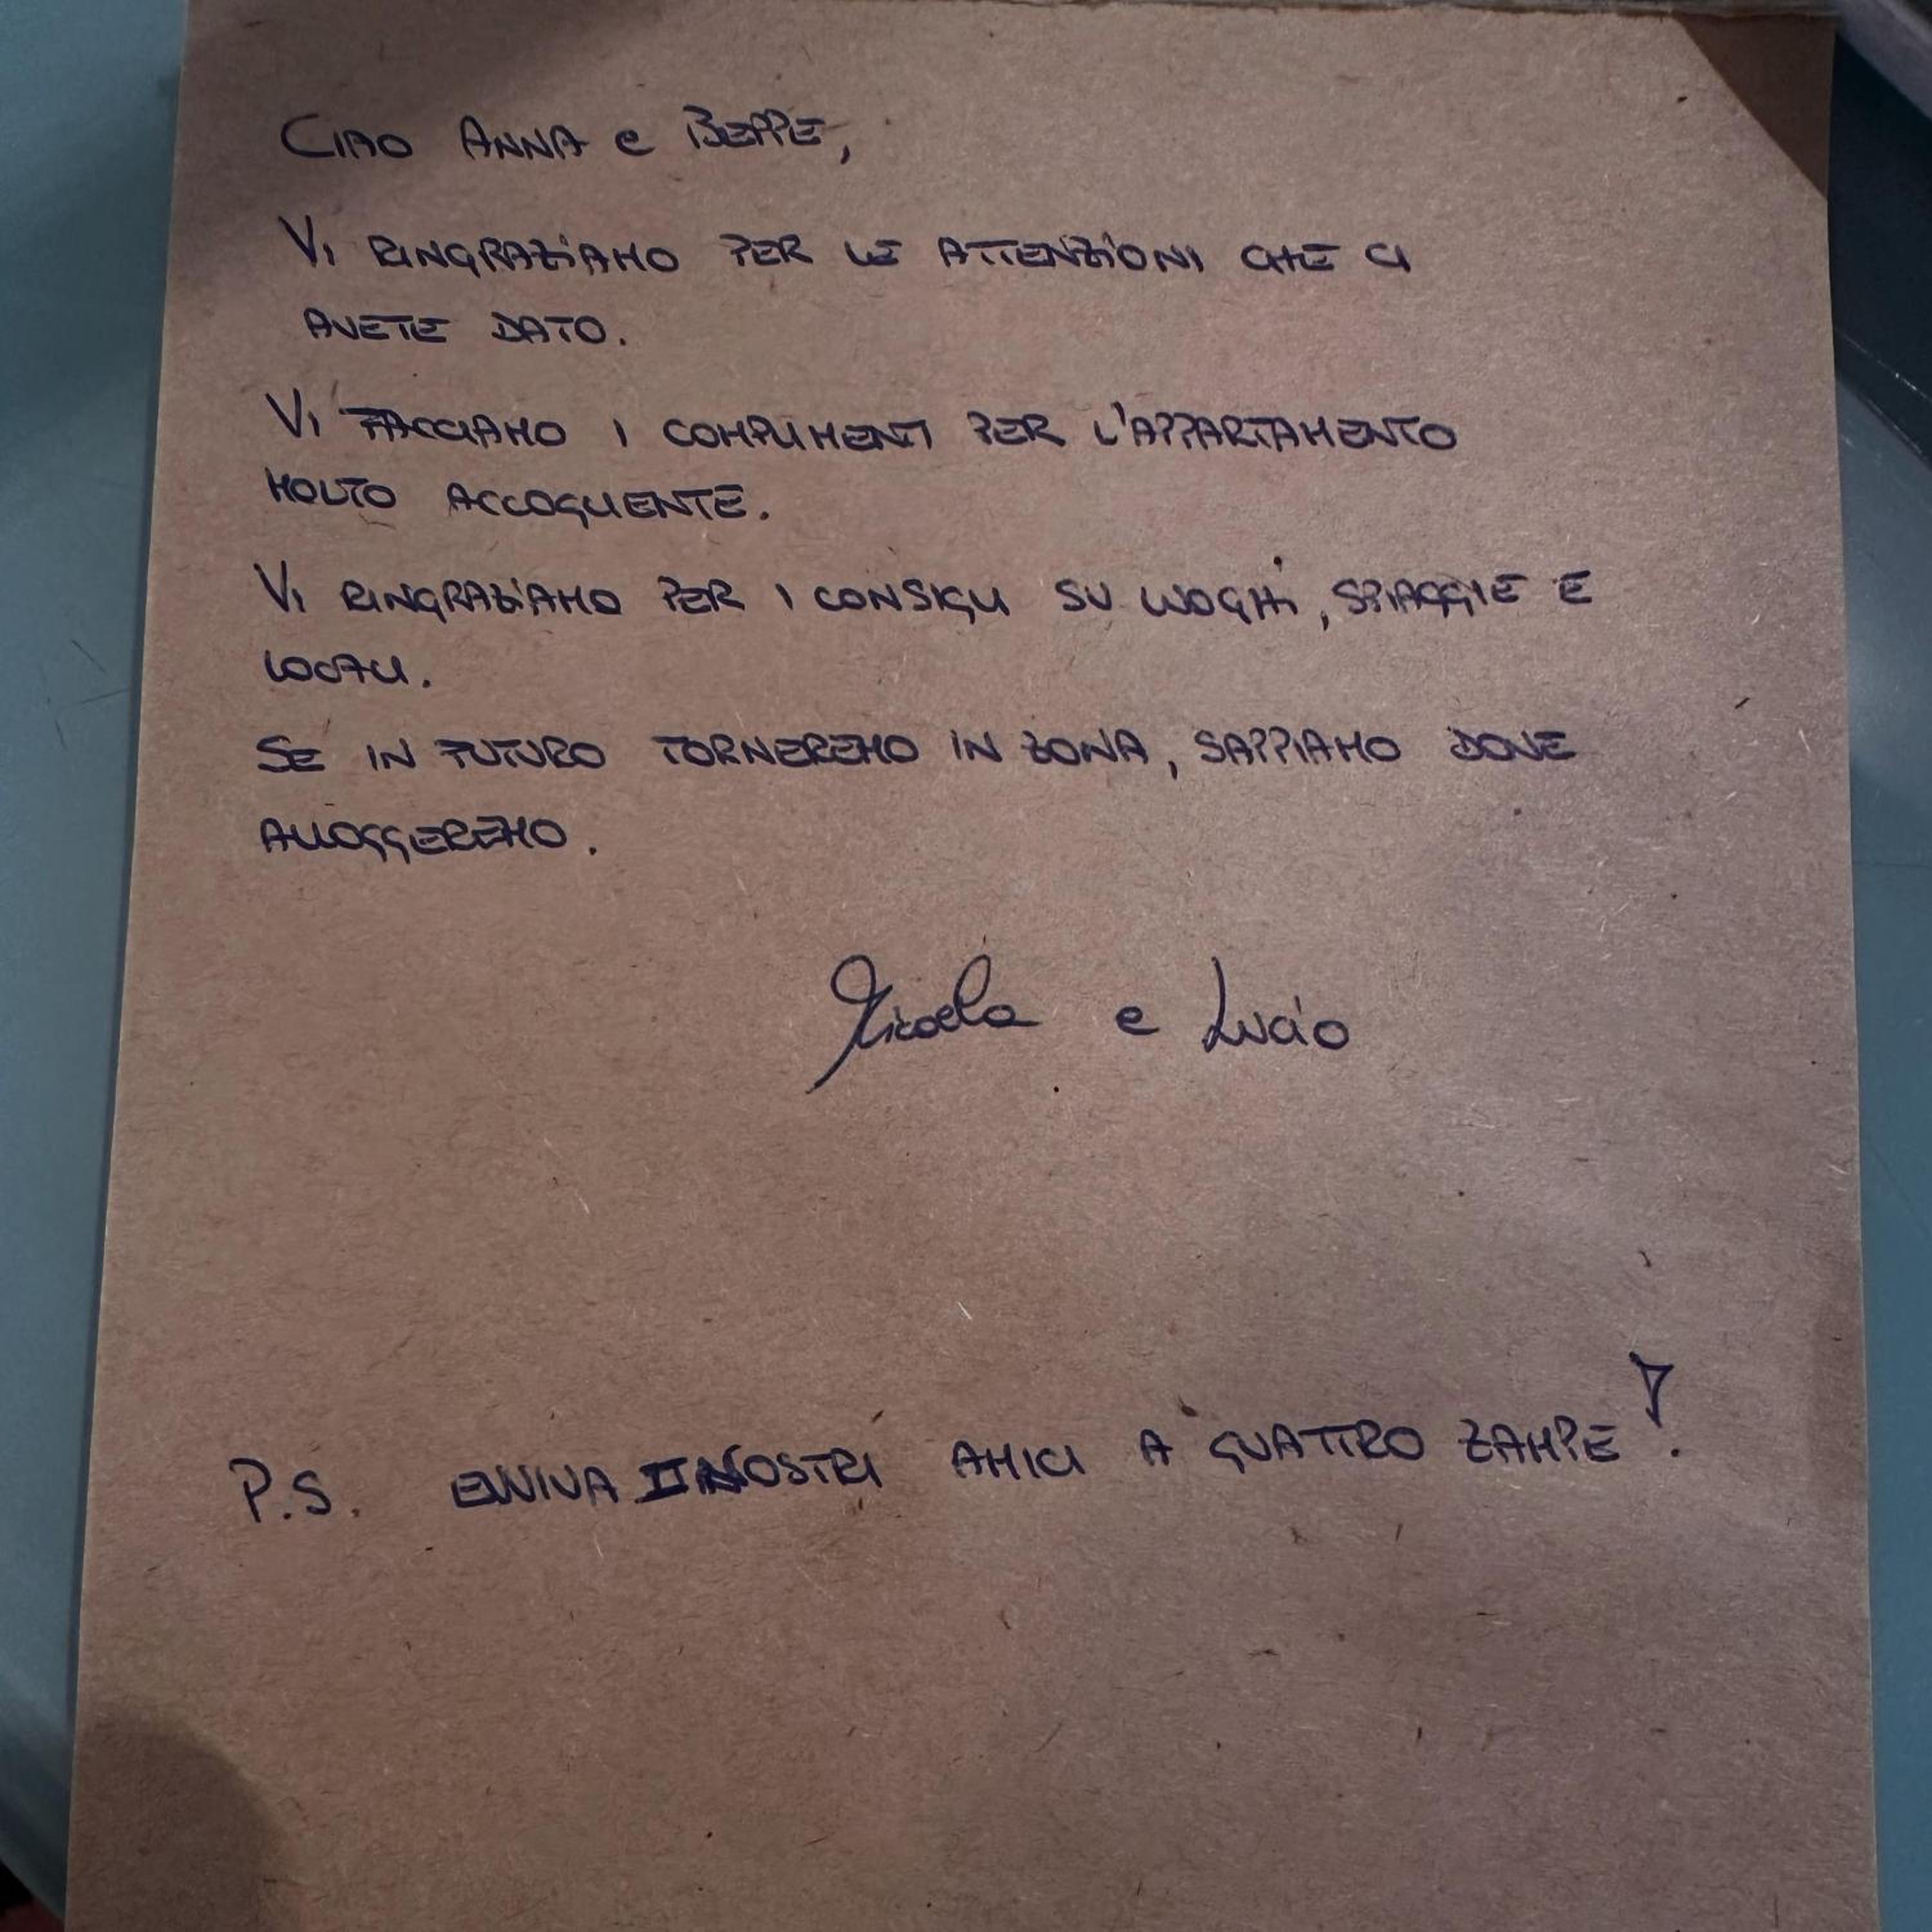 CIAO ANNA e BEPPE,
VI RINGRAZIAMO PER LE ATTENZIONI CHE CI
AVETE DATO.
VI FACCIAMO I COMPLIMENTI PER L'APPARTAMENTO
MOLTO ACCOGLIENTE.
VI RINGRAZIAMO PER I CONSIGLI SU LUOGHI, SPIAGGIE E
LOCALI.
SE IN FUTURO TORNEREMO IN ZONA, SAPPIAMO DOVE
ALLOGGEREMO.
e Lucio
P.S. EVVIVA I NOSTRI AMICI A QUATTRO ZAMPE!